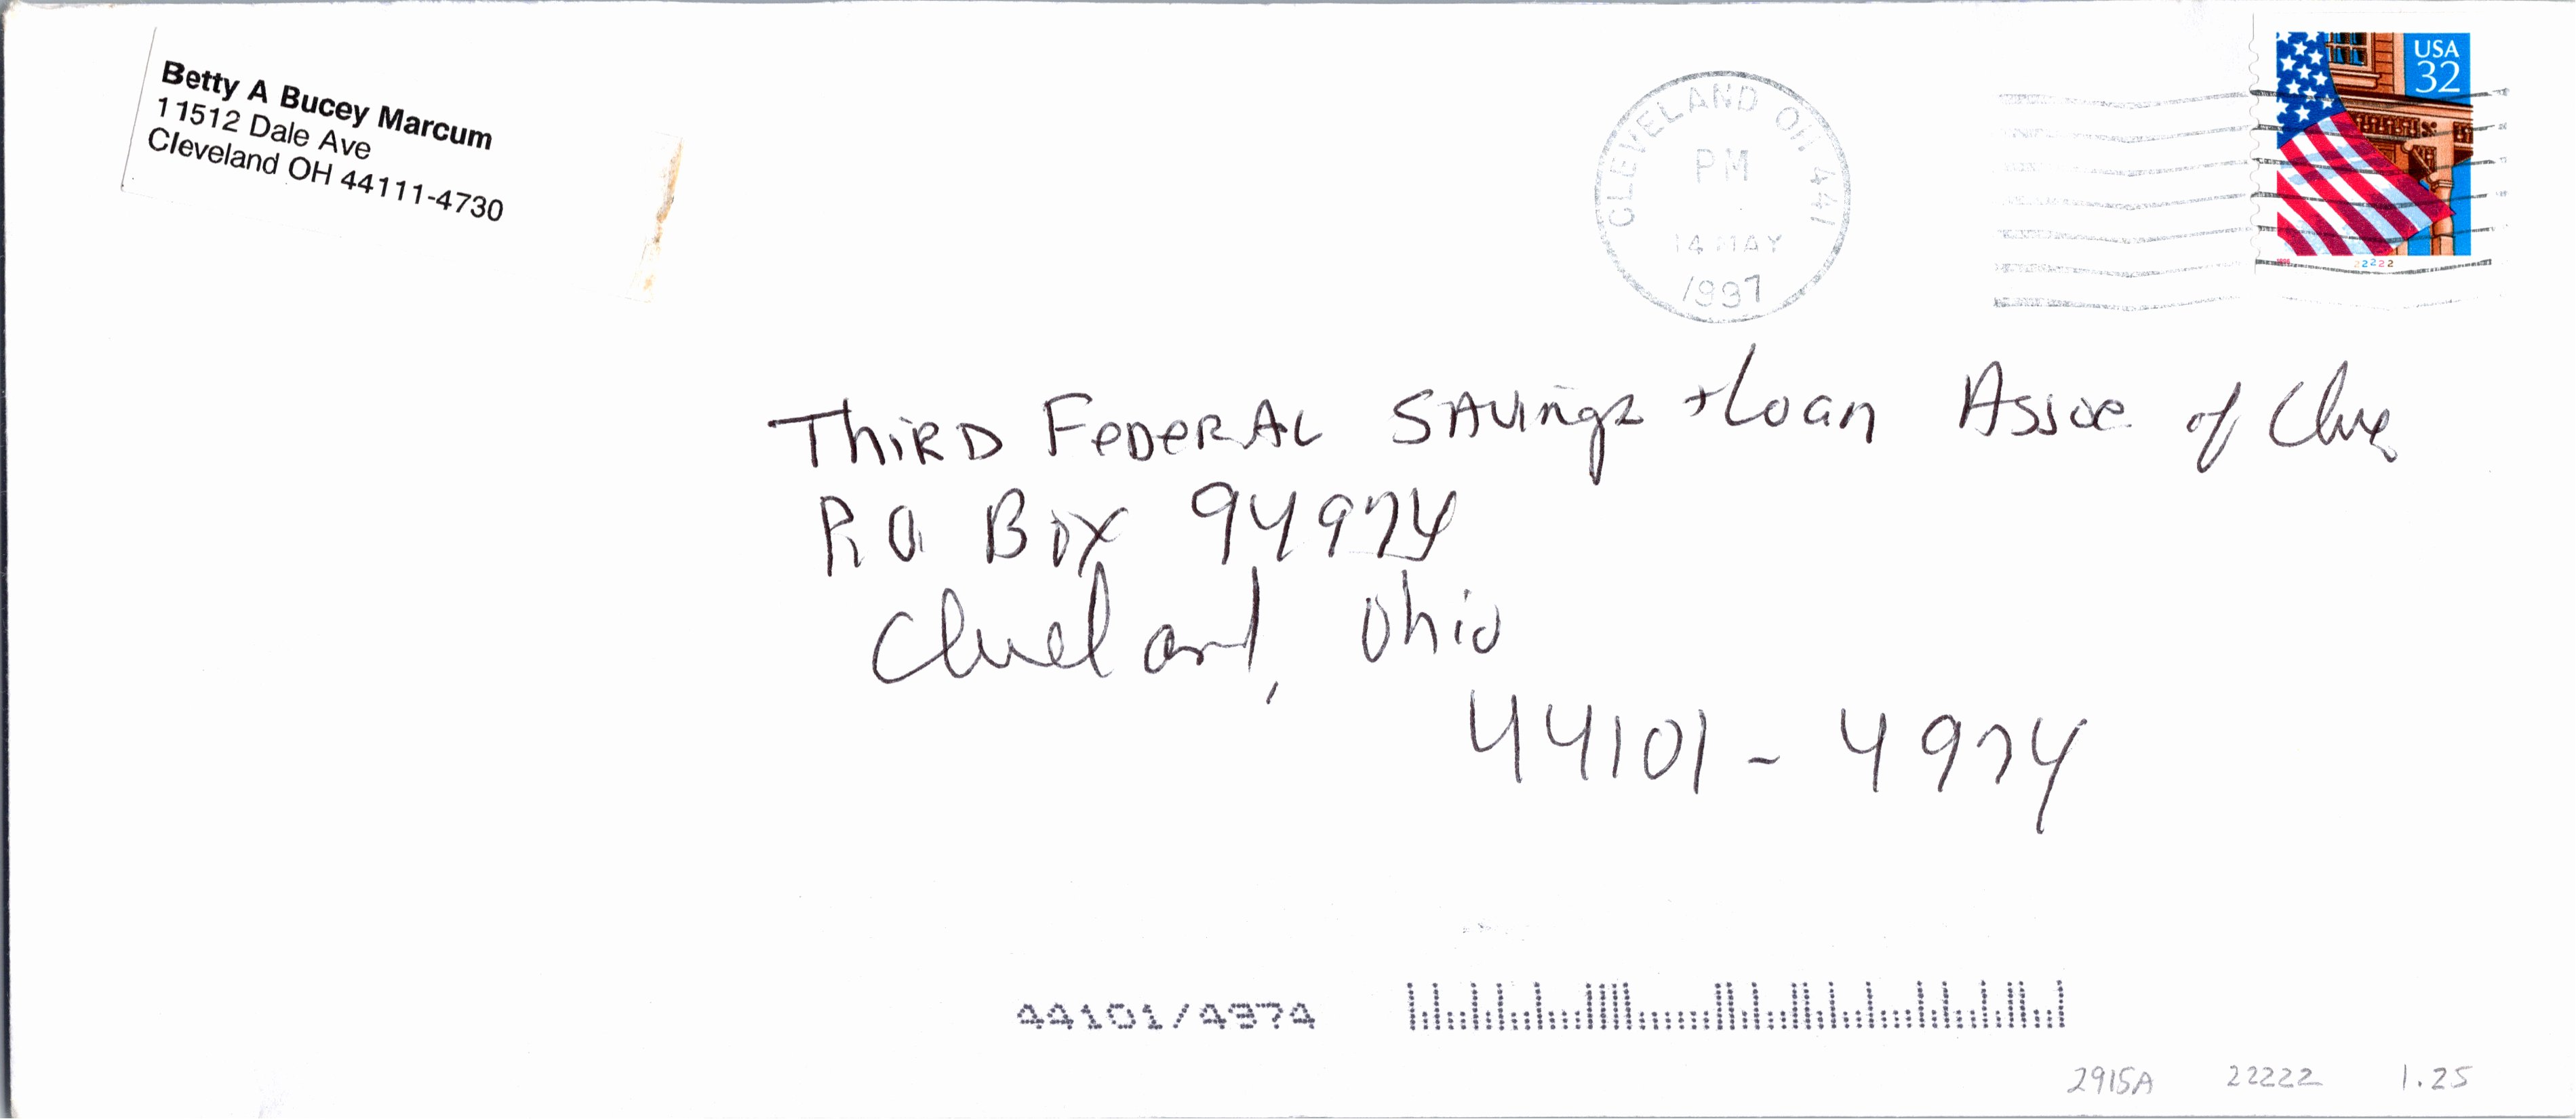 Betty A Bucey Marcum
11512 Dale Ave
Cleveland OH 44111-4730
CLEVELAND OH 441
PM
14 MAY
1997
USA
32
1996
22222
THIRD FEDERAL SAVINGS + Loan Assoc of Clve
P.O. Box 94974
Cleveland, Ohio
44101-4974
44101/4974
2915A 22222 1.25